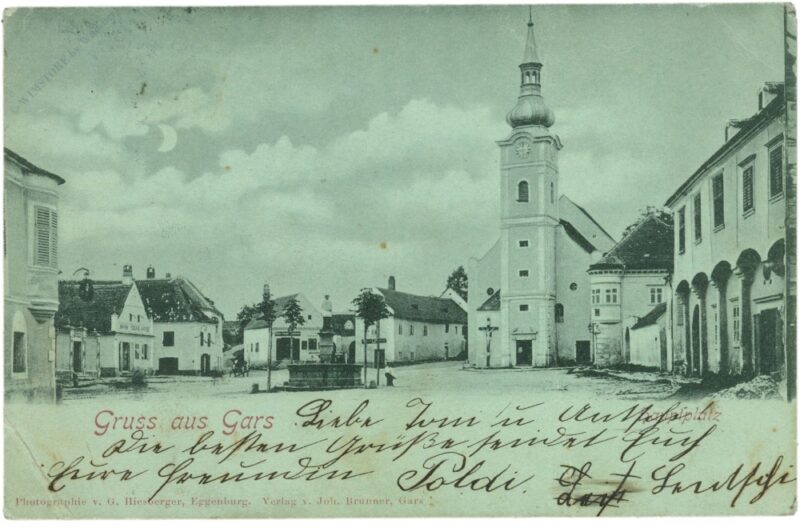 Gruss aus Gars
Hauptplatz
Liebe Tom u
Die besten Grüße sendet Euch
Eure Freundin Poldi.
Photographie v. G. Hiesberger, Eggenburg. Verlag v. Joh. Brunner, Gars